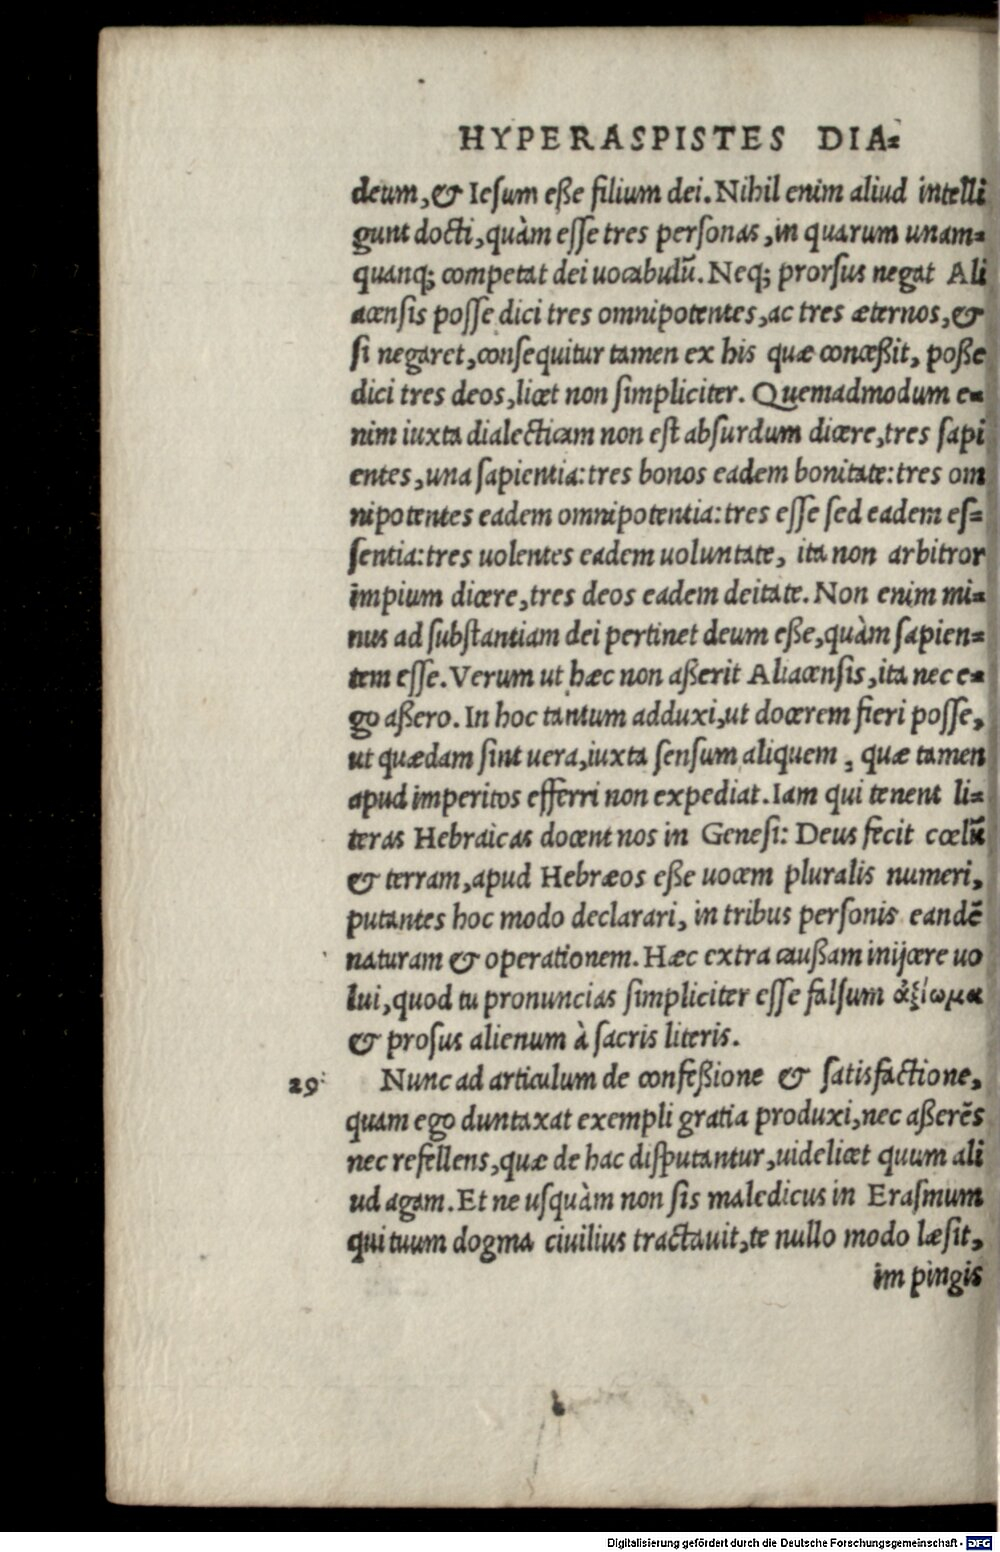 HYPERASPISTES DIA⸗
deum, & Iesum eße filium dei. Nihil enim aliud intelli
gunt docti, quàm esse tres personas, in quarum unam⸗
quanq; competat dei uocabulũ. Neq; prorsus negat Ali
acensis posse dici tres omnipotentes, ac tres æternos, &
si negaret, consequitur tamen ex his quæ conceßit, poße
dici tres deos, licet non simpliciter. Quemadmodum e⸗
nim iuxta dialecticam non est absurdum dicere, tres sapi
entes, una sapientia: tres bonos eadem bonitate: tres om
nipotentes eadem omnipotentia: tres esse sed eadem es⸗
sentia: tres uolentes eadem uoluntate, ita non arbitror
impium dicere, tres deos eadem deitate. Non enim mi⸗
nus ad substantiam dei pertinet deum eße, quàm sapien⸗
tem esse. Verum ut hæc non aßerit Aliacensis, ita nec e⸗
go aßero. In hoc tantum adduxi, ut docerem fieri posse,
ut quædam sint uera, iuxta sensum aliquem, quæ tamen
apud imperitos efferri non expediat. Iam qui tenent li⸗
teras Hebraicas docent nos in Genesi: Deus fecit cœlũ
& terram, apud Hebræos eße uocem pluralis numeri,
putantes hoc modo declarari, in tribus personis eandẽ
naturam & operationem. Hæc extra caußam inijcere uo
lui, quod tu pronuncias simpliciter esse falsum ἀξίωμα
& prosus alienum à sacris literis.
29 Nunc ad articulum de confeßione & satisfactione,
quam ego duntaxat exempli gratia produxi, nec aßerẽs
nec refellens, quæ de hac disputantur, uidelicet quum ali
ud agam. Et ne usquàm non sis maledicus in Erasmum
qui tuum dogma ciuilius tractauit, te nullo modo læsit,
im pingis
Digitalisierung gefördert durch die Deutsche Forschungsgemeinschaft - DFG